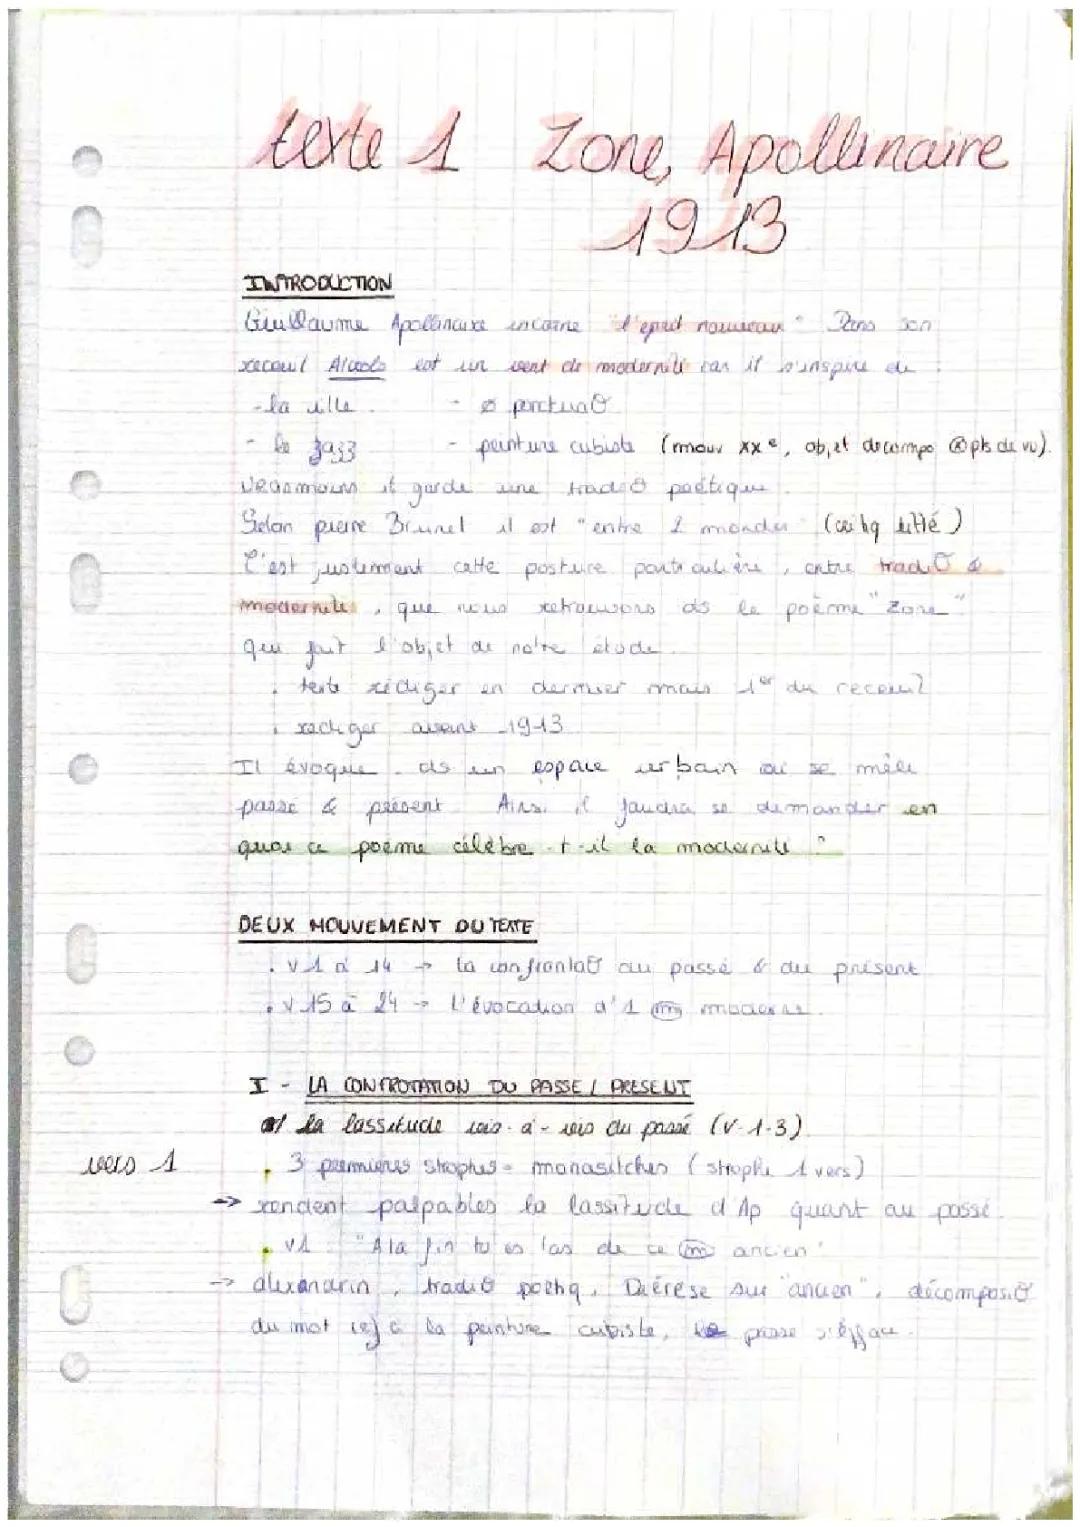 texte 1 Zone, Apollinaire
1913
INTRODUCTION
Guillaume Apollinaire incarne "l'esprit nouveau" Dans son
receuil Alcools est un vent de modernité car il s'inspire de :
- la ville. - ø ponctuaO
- le jazz - peinture cubiste (mouv XXe, objet décompo pts de vu).
Néanmoins il garde une tradO poétique.
Selon pierre Brunel il est "entre 2 mondes" (critiq litté)
C'est justement cette posture particulière, entre tradO &
modernité, que nous retrouvons ds le poème "Zone"
qui fait l'objet de notre étude.
. texte rédiger en dernier mais 1er du receuil
. rediger avant 1913
Il évoque ds un espace urbain où se mêle
passé & présent. Ainsi il faudra se demander en
quoi ce poème célèbre-t-il la modernité ?
DEUX MOUVEMENT DU TEXTE
. V 1 à 14 → la confrontaO du passé & du présent
. V 15 à 24 → l'évocation d'1 moderne.
I - LA CONFROTATION DU PASSE / PRESENT
a/ la lassitude vis-à-vis du passé (V 1-3)
vers 1
. 3 premières strophes = monostiches (strophe 1 vers)
→ rendent palpables la lassitude d'Ap quant au passé.
. V1 "A la fin tu es las de ce ancien"
→ alexandrin, tradiO poétiq, Diérèse sur "ancien", décomposiO
du mot la peinture cubiste, le passé s'éfface.